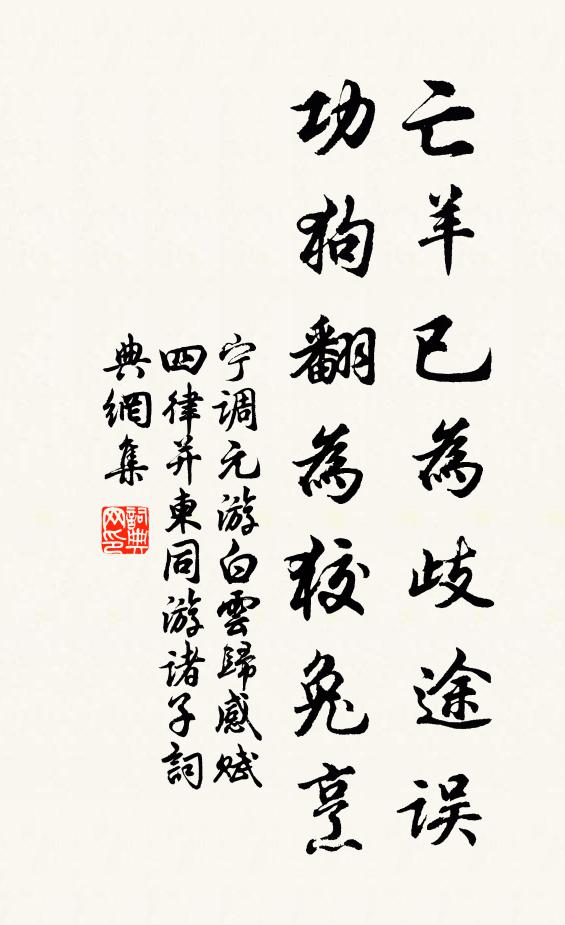 亡羊已為歧途误
功狗翻為狡兔烹
宁調元游白雲歸感赋
四律并東同游诸子詞
典網集
詞典网印